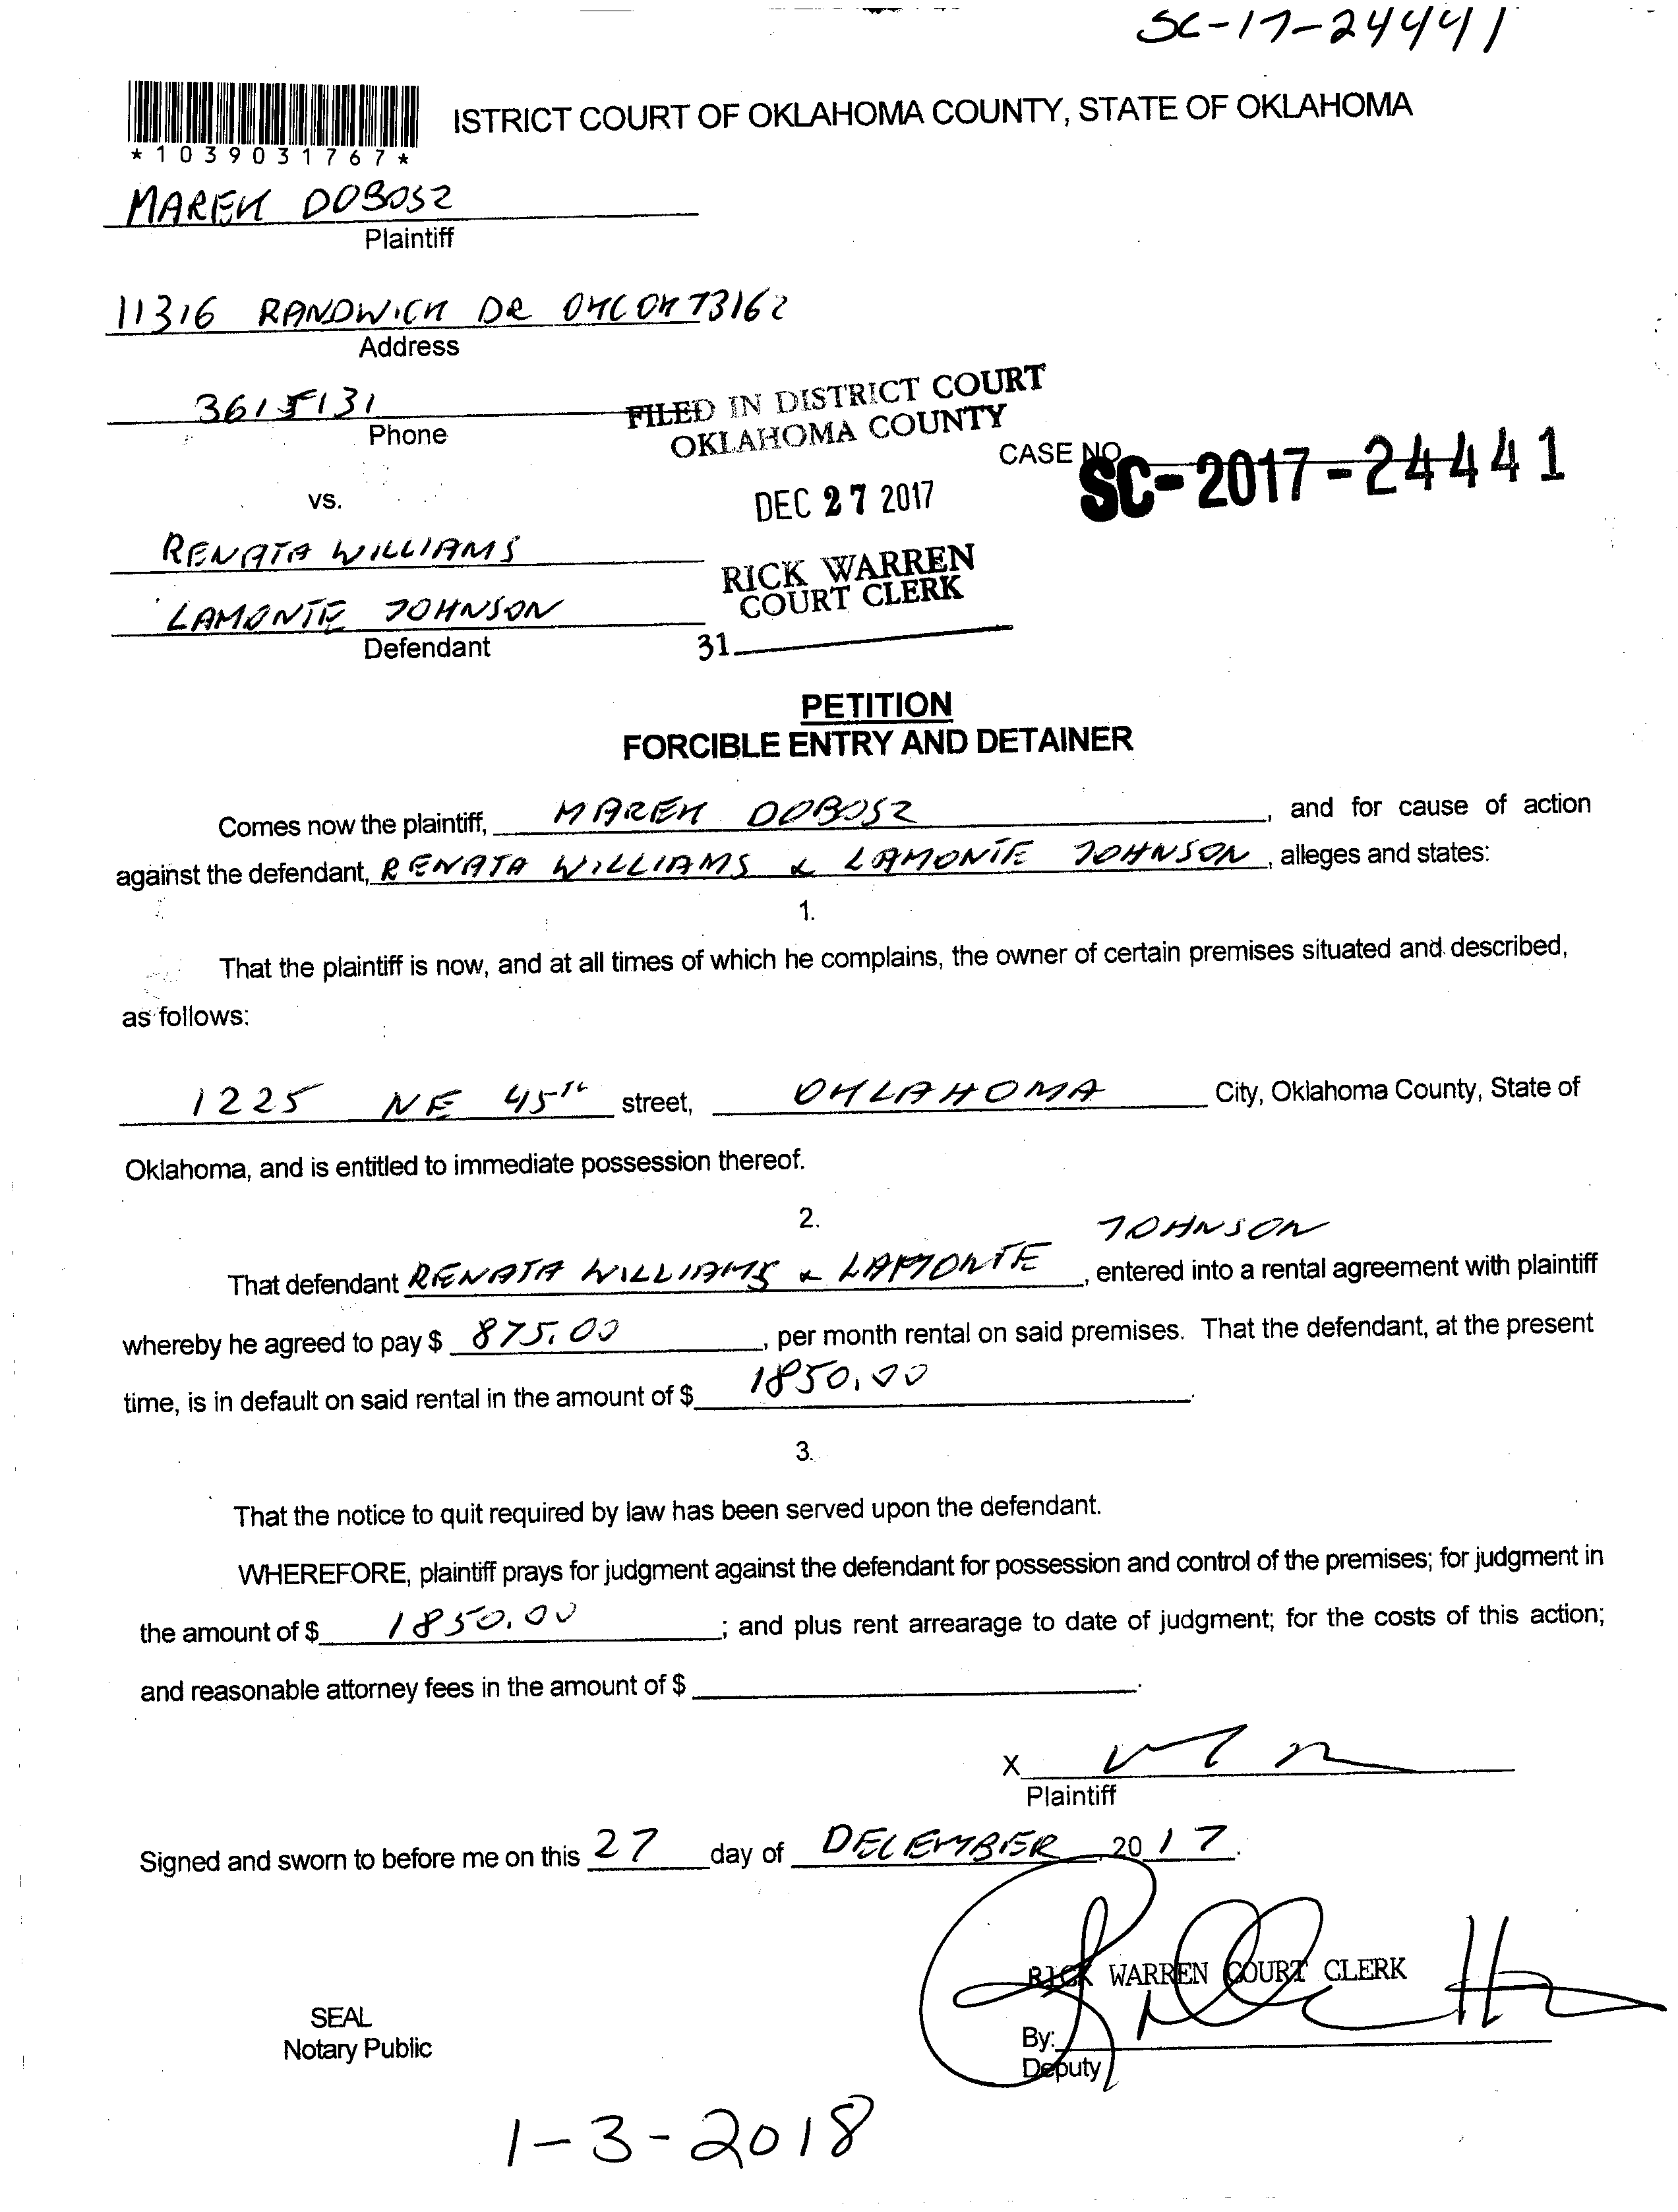 SC-17-24441
ISTRICT COURT OF OKLAHOMA COUNTY, STATE OF OKLAHOMA
*1039031767*
MAREK DOBOSZ
Plaintiff
11316 RANDWICK DR OKC OK 73162
Address
3615131
Phone
FILED IN DISTRICT COURT
OKLAHOMA COUNTY
CASE NO.
SC-2017-24441
vs.
DEC 27 2017
RENATA WILLIAMS
RICK WARREN
COURT CLERK
LAMONTE JOHNSON
Defendant
31
PETITION
FORCIBLE ENTRY AND DETAINER
Comes now the plaintiff, MAREK DOBOSZ, and for cause of action
against the defendant, RENATA WILLIAMS & LAMONTE JOHNSON, alleges and states:
1.
That the plaintiff is now, and at all times of which he complains, the owner of certain premises situated and described,
as follows:
1225 NE 45TH street, OKLAHOMA City, Oklahoma County, State of
Oklahoma, and is entitled to immediate possession thereof.
2.
JOHNSON
That defendant RENATA WILLIAMS & LAMONTE, entered into a rental agreement with plaintiff
whereby he agreed to pay $ 875.00, per month rental on said premises. That the defendant, at the present
time, is in default on said rental in the amount of $ 1850.00.
3.
That the notice to quit required by law has been served upon the defendant.
WHEREFORE, plaintiff prays for judgment against the defendant for possession and control of the premises; for judgment in
the amount of $ 1850.00; and plus rent arrearage to date of judgment; for the costs of this action;
and reasonable attorney fees in the amount of $.
X
Plaintiff
Signed and sworn to before me on this 27 day of DECEMBER, 2017.
RICK WARREN COURT CLERK
SEAL
Notary Public
By:
Deputy
1-3-2018